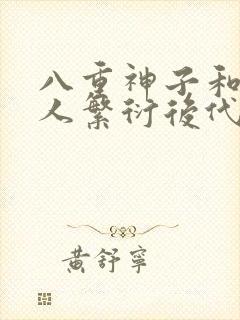 八重神子和
人繁衍後代
黃舒寧